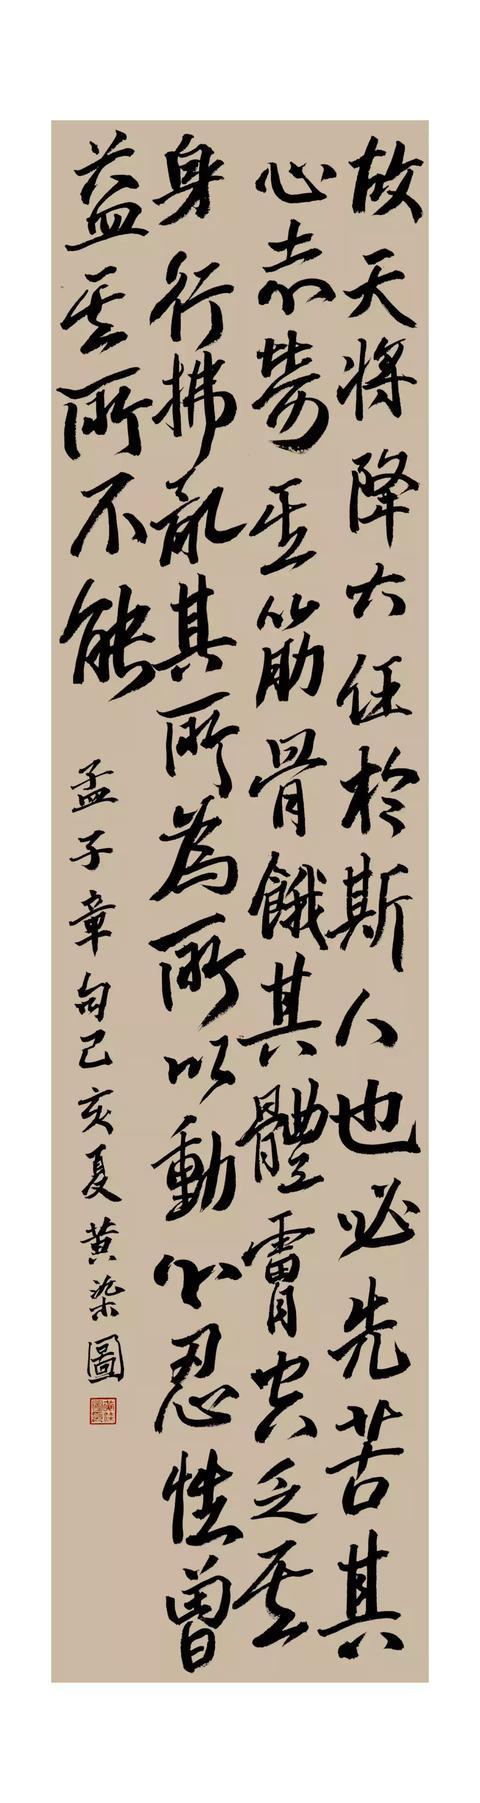 故天将降大任於斯人也必先苦其
心志勞其筋骨餓其體膚空乏其
身行拂亂其所為所以動心忍性曾
益其所不能
孟子章句己亥夏黄柒圖